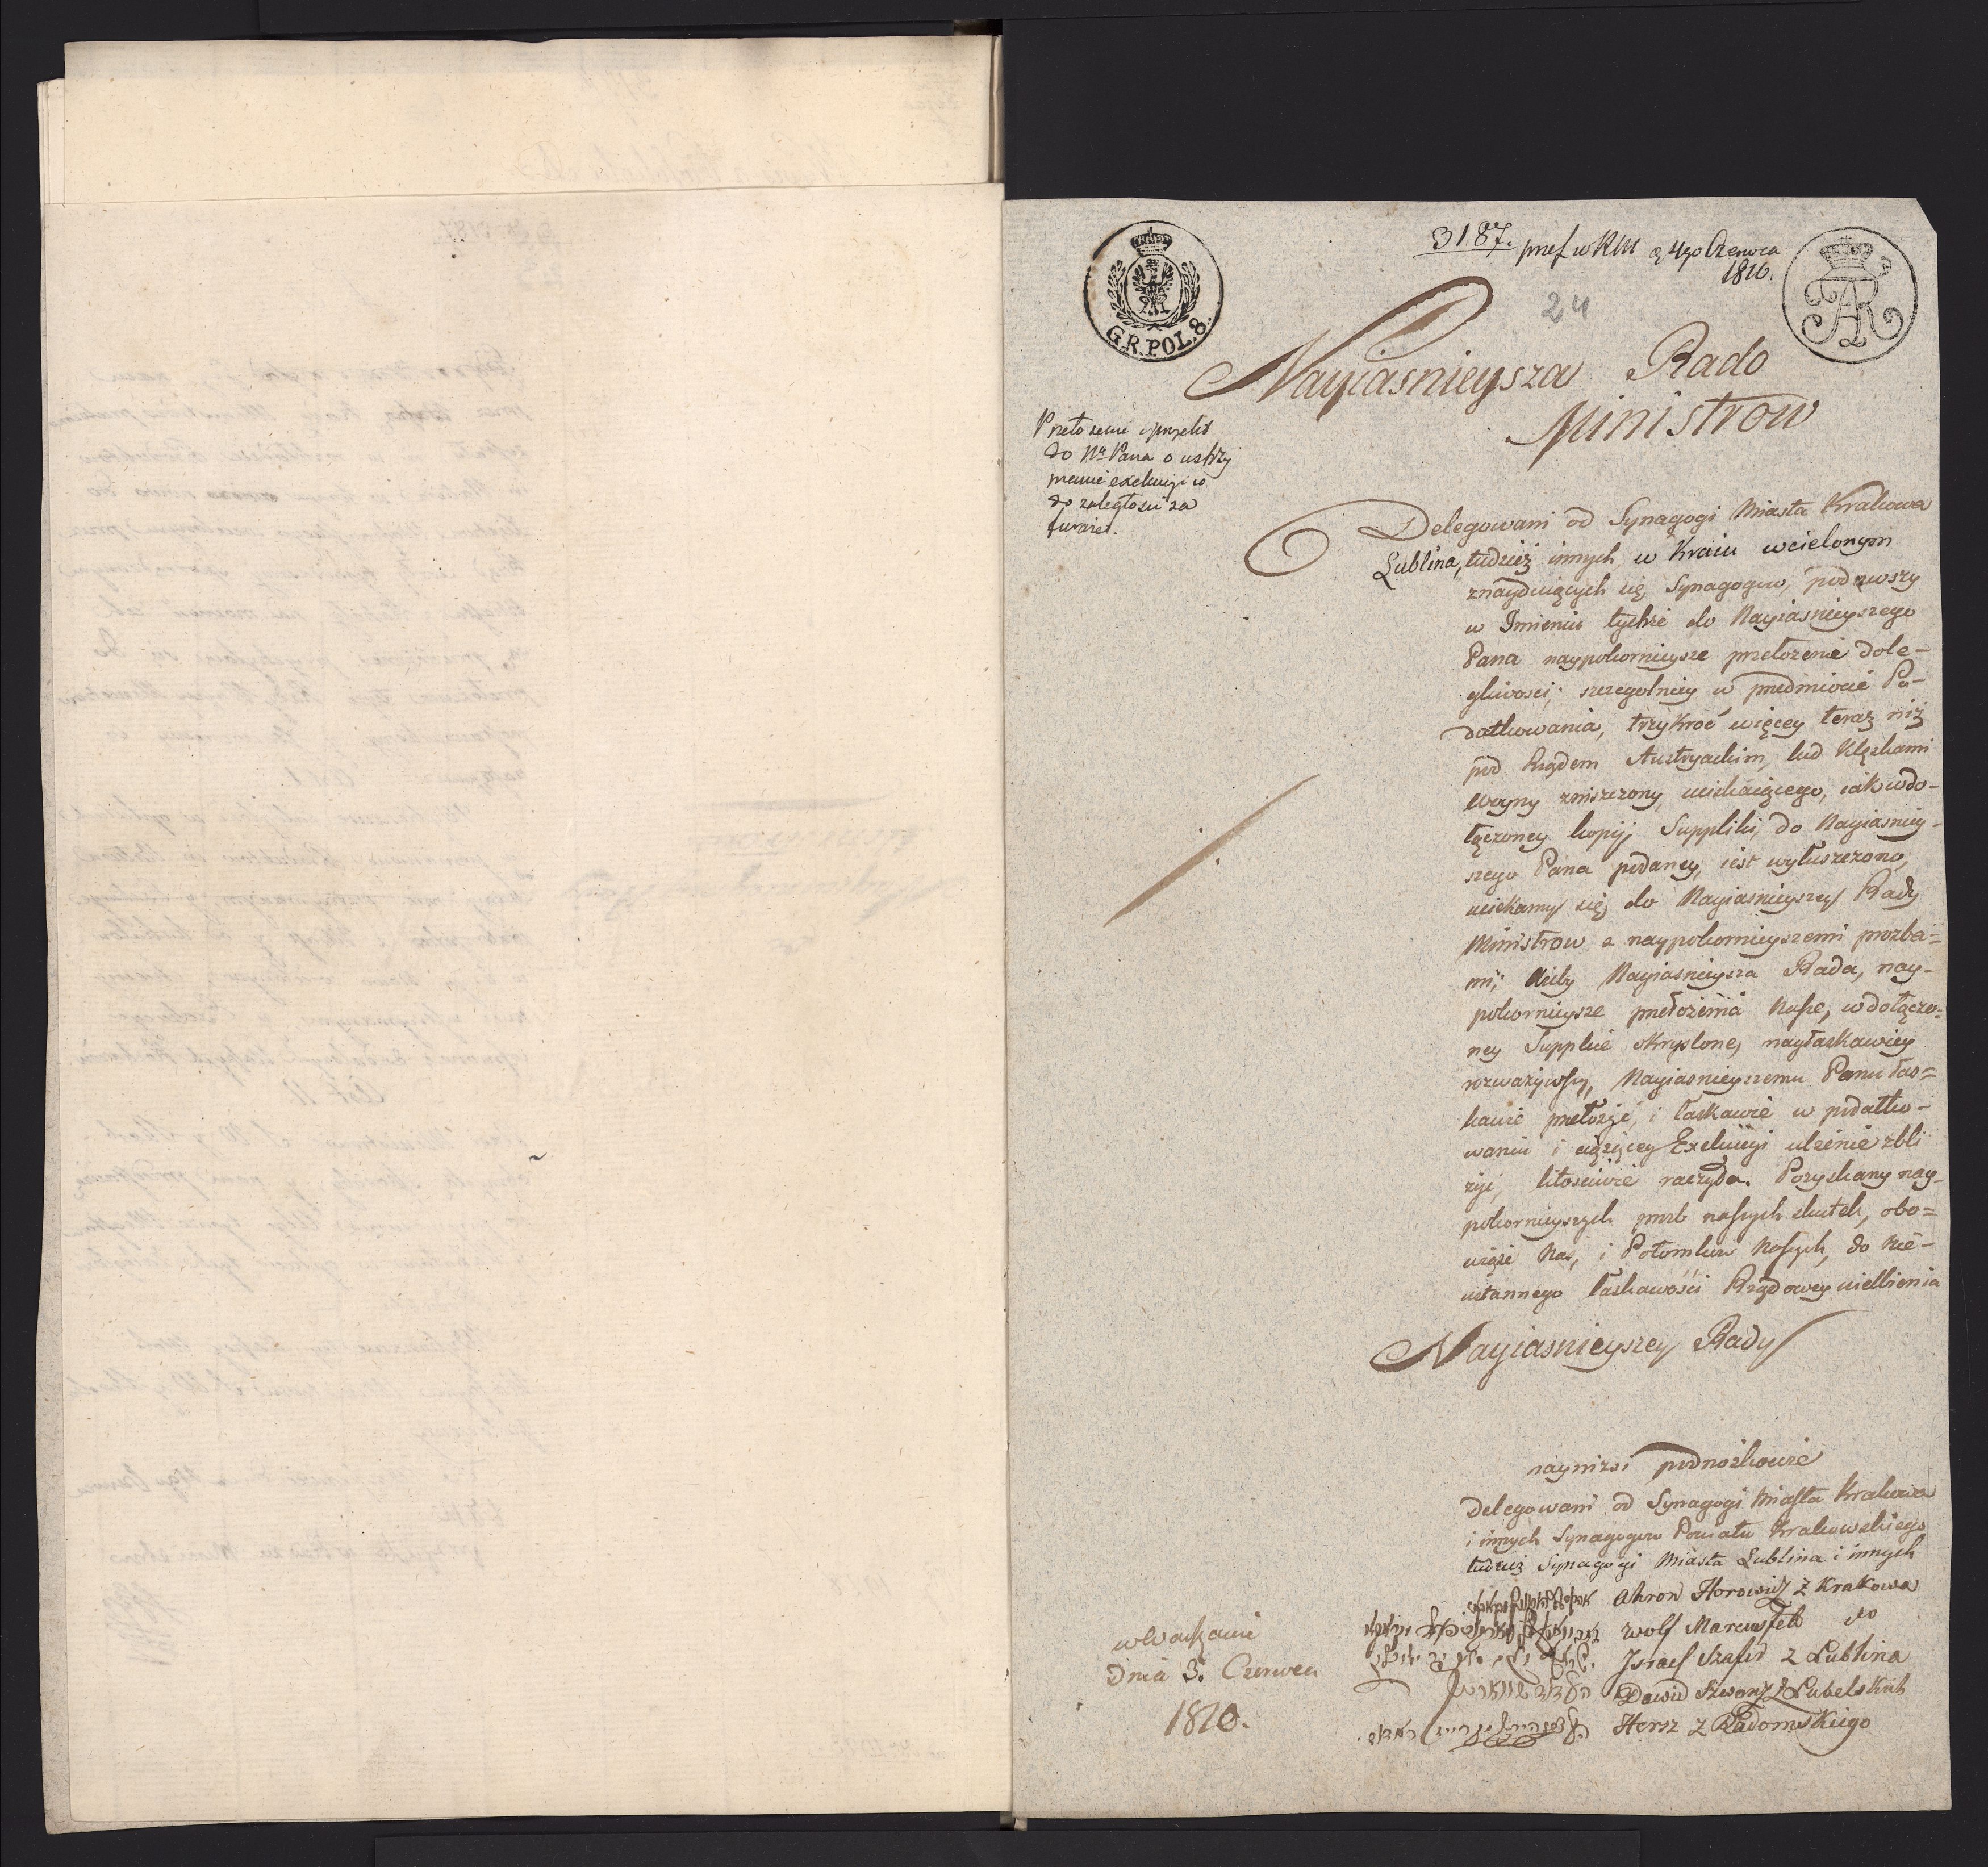 3187. pnes w RM d 4go Czerwca
1810.
24
G.R.POL.8.
AR
Nayiasnieysza Rado
Ministrow
Przełożenie
do Nº Pana o ustrzy
manie exekucyi
do zaległosci za
furaże.
Delegowani od Synagogi Miasta Krakowa
Lublina, tudzież innych w Kraiu wcielonym
znayduiących się Synagogow, podawszy
w Imieniu tychże do Nayiasnieyszego
Pana naypokornieysze przełożenie dole-
gliwosci, szczegolniey w przedmiocie Po-
datkowania, trzykroć więcey teraz niż
pod Rządem Austryackim, lud klęskami
woyny zniszczony uciskaiącego, iak w do-
łączoney kopij Suppliki, do Nayiasniey-
szego Pana podaney, iest wyłuszczono,
uciekamy się do Nayiasnieyszey Rady
Ministrow z naypokornieyszemi prozba-
mi; Ażeby Nayiasnieysza Rada, nay-
pokornieysze przełożenia nasze, w dołączo-
ney Supplice okryslone, nayłaskawiey
rozważywszy, Nayiasnieyszemu Panu łas-
kawie przełożyć, i łaskawie w podatko-
waniu i ciążącey Exekucyi ulżenie zbli
żyć, litościwie raczyła. Pozyskany nay-
pokornieyszych prozb naszych skutek, obo-
wiąże Nas, i Potomkow Naszych, do nie-
ustannego łaskawości Rządowey uielbienia
Nayiasnieyszey Rady
naynizsi podnóżkowie
Delegowani od Synagogi Miasta Krakowa
i innych Synagogow Powiatu Krakowskiego
tudzież Synagogi Miasta Lublina i innych
Ahron Horowicz z Krakowa
Wolf Marcusfeld do
Jsrael Szafir z Lublina
Dawid Szwarz z Lubelskich
Hersz z Radomskiego
w Warszawie
Dnia 3. Czerwca
1810.